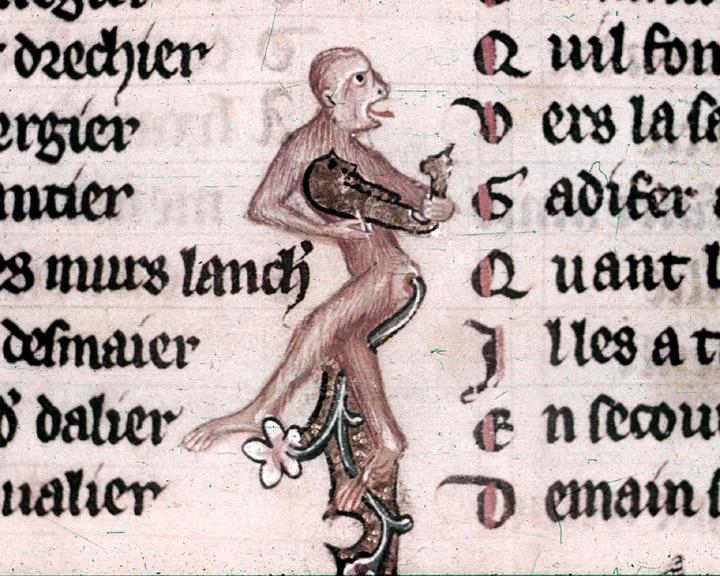 drechier
ergier
antier
es murs lanch'
desmaier
d' dalier
ualier
Q uil fon
V ers la sa
S adiser
Q uant l
I lles a t
E n secou
D emain s